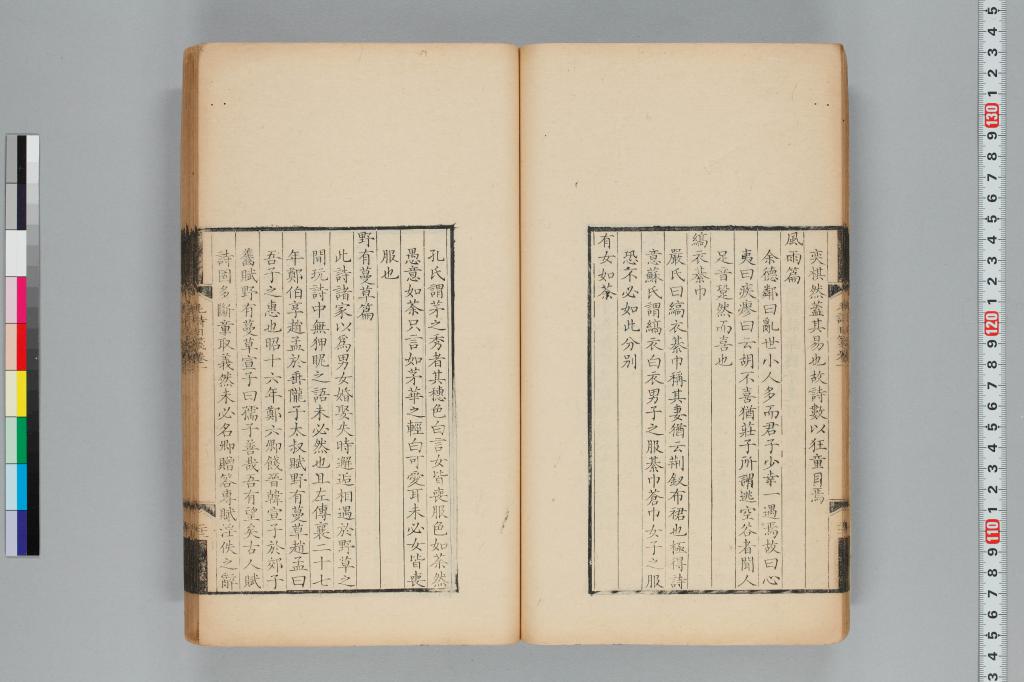 奕棋然蓋其易也故詩數以狂童目焉
風雨篇
余德鄰曰亂世小人多而君子少幸一遇焉故曰心
夷曰疾瘳曰云胡不喜猶莊子所謂逃空谷者聞人
足音跫然而喜也
縞衣綦巾
嚴氏曰縞衣綦巾稱其妻猶云荆釵布裙也極得詩
意蘇氏謂縞衣白衣男子之服綦巾蒼巾女子之服
恐不必如此分别
有女如荼
孔氏謂茅之秀者其穗色白言女皆喪服色如荼然
愚意如荼只言如茅華之輕白可愛耳未必女皆喪
服也
野有蔓草篇
此詩諸家以爲男女婚娶失時邂逅相遇於野草之
間玩詩中無狎昵之語未必然也且左傳襄二十七
年鄭伯享趙孟於垂隴子太叔賦野有蔓草趙孟曰
吾子之惠也昭十六年鄭六卿餞晉韓宣子於郊子
齹賦野有蔓草宣子曰孺子善哉吾有望矣古人賦
詩固多斷章取義然未必名卿贈答專賦淫佚之辭
5
4
3
2
1
130
9
8
7
6
5
4
3
2
1
120
9
8
7
6
5
4
3
2
1
110
9
8
7
6
5
4
3